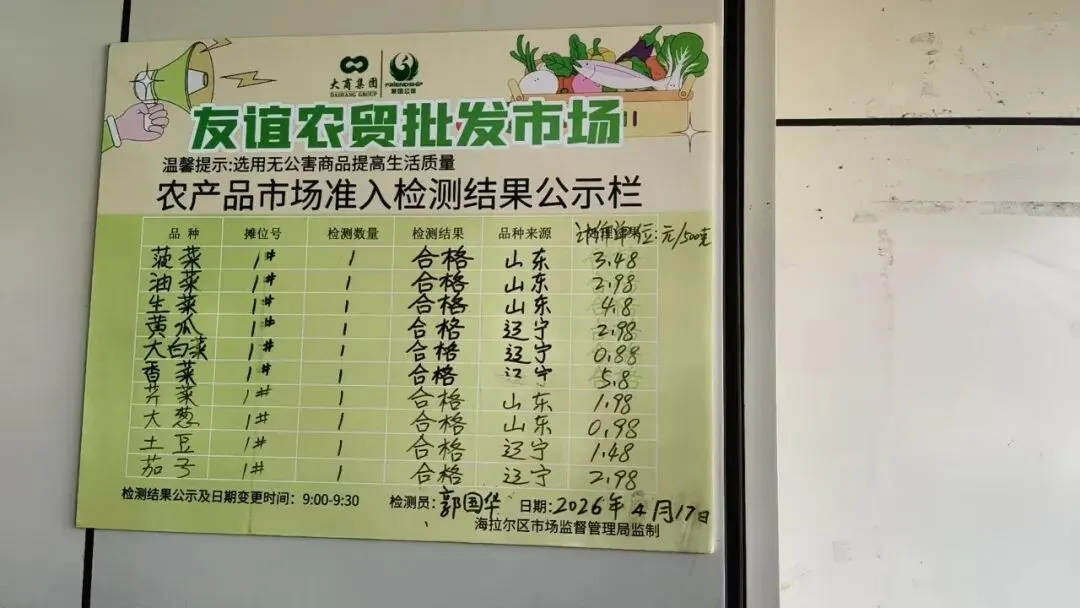 大商集团
DASHANG GROUP
FRIENDSHIP
友谊农贸批发市场
温馨提示:选用无公害商品提高生活质量
农产品市场准入检测结果公示栏
品种 摊位号 检测数量 检测结果 品种来源 计价单位:元/500克
菠菜 1# 1 合格 山东 3.48
油菜 1# 1 合格 山东 2.98
生菜 1# 1 合格 山东 4.8
黄瓜 1# 1 合格 辽宁 2.98
大白菜 1# 1 合格 辽宁 0.88
香菜 1# 1 合格 辽宁 5.8
芹菜 1# 1 合格 山东 1.98
大葱 1# 1 合格 山东 0.98
土豆 1# 1 合格 辽宁 1.48
茄子 1# 1 合格 辽宁 2.98
检测结果公示及日期变更时间: 9:00-9:30 检测员:郭国华 日期:2026年4月17日
海拉尔区市场监督管理局监制